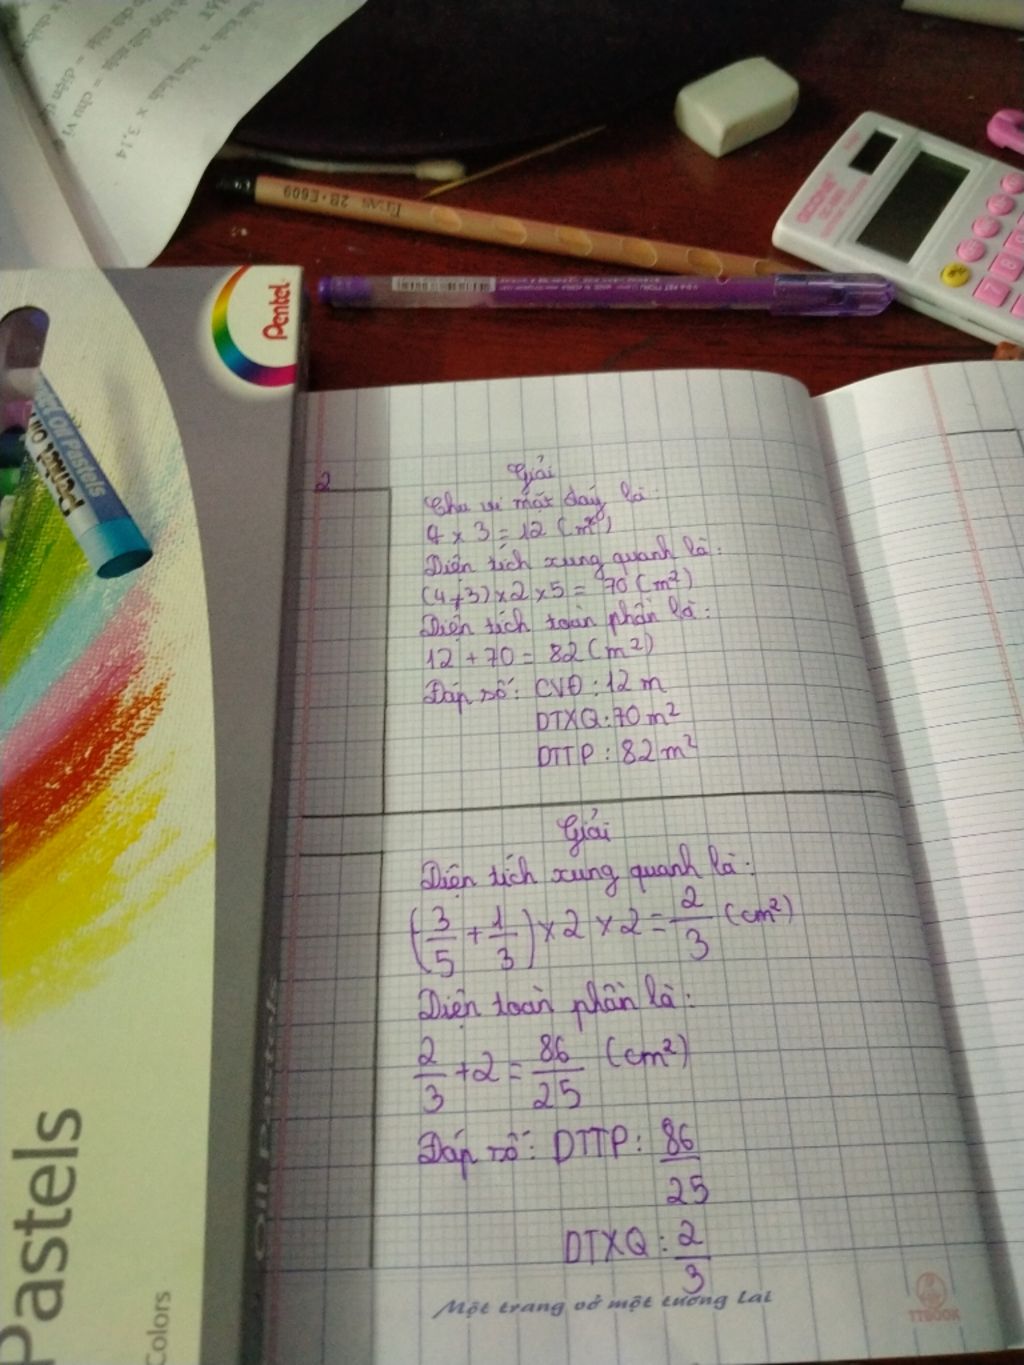 bán kính x 3,14
Pentel
TITAN 2B·E609
Oil Pastels
Pentel Oil
2
Giải
Chu vi mặt đáy là:
4 x 3 = 12 (m²)
Diện tích xung quanh là:
(4+3) x 2 x 5 = 70 (m²)
Diện tích toàn phần là:
12 + 70 = 82 (m²)
Đáp số: CVĐ: 12 m
DTXQ: 70 m²
DTTP: 82 m²
Giải
Diện tích xung quanh là:
(3/5 + 1/3) x 2 x 2 = 2/3 (cm²)
Diện toàn phần là:
2/3 + 2 = 86/25 (cm²)
Đáp số: DTTP: 86/25
DTXQ: 2/3
Một trang vở một tương lai
TTBOOK
Pastels
Colors